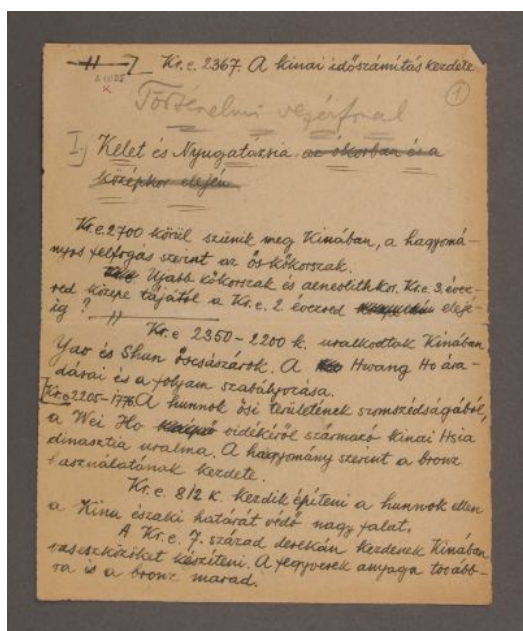 Kr.e. 2367. A kinai időszámítás kezdete
Történelmi vezérfonal
1
I.) Kelet és Nyugatázsia az ókorban és a
középkor elején
Kr.e. 2700 körül szünik meg Kinában, a hagyomá-
nyos felfogás szerint az ős-kőkorszak.
Ujabb kőkorszak és aeneolithkor. Kr.e. 3. évez-
red közepe tájától a Kr.e. 2 évezred elejé-
ig?
Kr.e 2350-2200 k. uralkodtak Kinában
Yao és Shun őscsászárok. A Hwang Ho ára-
dásai és a folyam szabályozása.
Kr.e 2205-1776 A hunnok ősi területének szomszédságából,
a Wei Ho vidékéről származó kinai Hsia
dinasztia uralma. A hagyomány szerint a bronz
használatának kezdete.
Kr.e. 812 k. kezdik épiteni a hunnok ellen
a Kina északi határát védő nagy falat.
A Kr.e. 7. század derekán kezdenek Kinában
vaseszközöket késziteni. A fegyverek anyaga tovább-
ra is a bronz marad.